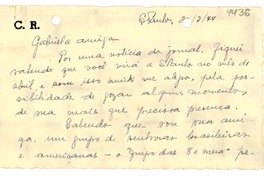 C. R.
S. Paulo, 2-12/44
4436
Gabriela amiga
Por uma notícia de jornal, fiquei
sabendo que você virá a S. Paulo no mês de
abril e com isso muito me alegro, pela pos-
sibilidade de gozar alguns momentos
de sua mais que preciosa presença.
Sabendo que sou sua ami-
ga, um grupo de senhoras brasileiras
e americanas - o "Grupo das